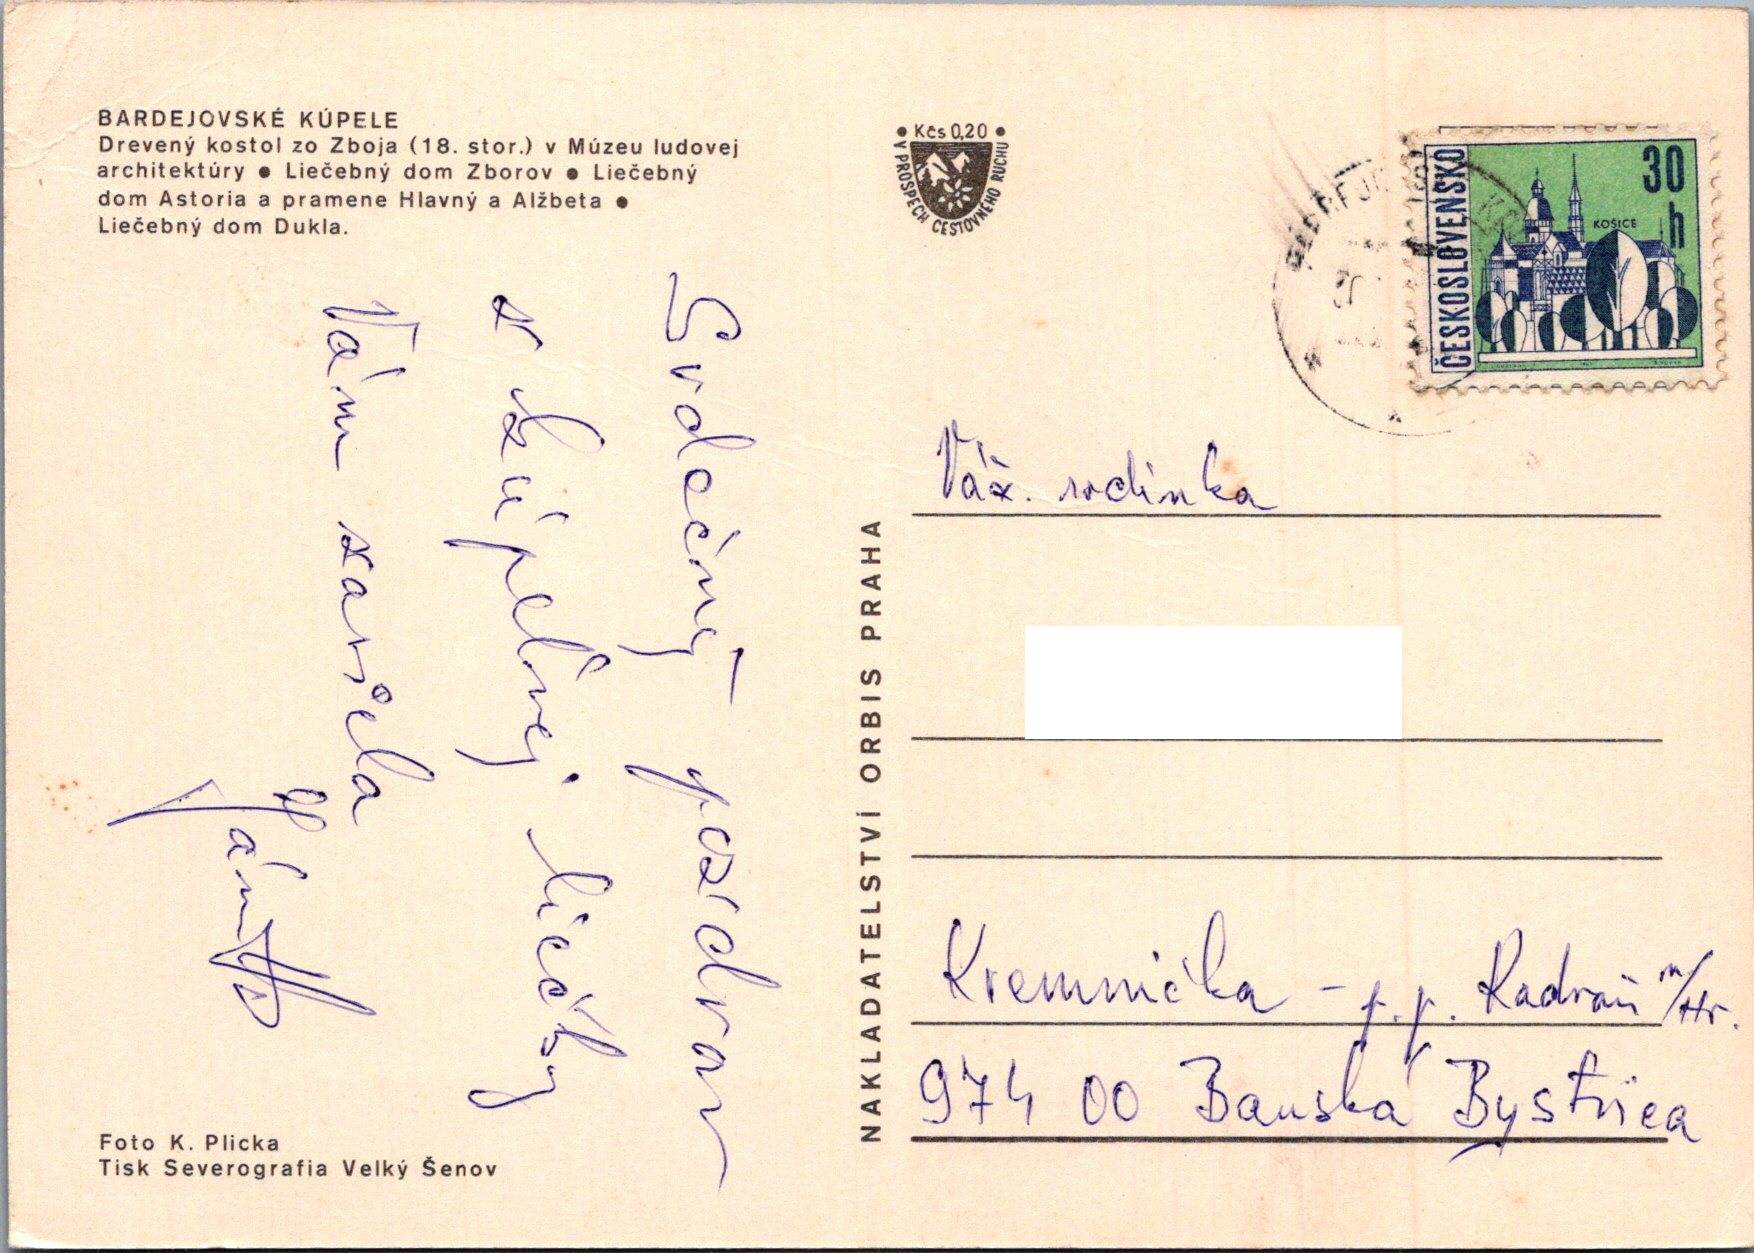 BARDEJOVSKÉ KÚPELE
Drevený kostol zo Zboja (18. stor.) v Múzeu ludovej
architektúry ● Liečebný dom Zborov ● Liečebný
dom Astoria a pramene Hlavný a Alžbeta ●
Liečebný dom Dukla.
● Kčs 0,20 ●
V PROSPĚCH CESTOVNÉHO RUCHU
ČESKOSLOVENSKO
30
h
KOŠICE
Srdečný pozdrav
z kúpeľnej liečby
Vám zasiela
NAKLADATELSTVÍ ORBIS PRAHA
Váž. rodinka
Kremnička - p.p. Radvaň n/Hr.
974 00 Banská Bystrica
Foto K. Plicka
Tisk Severografia Velký Šenov